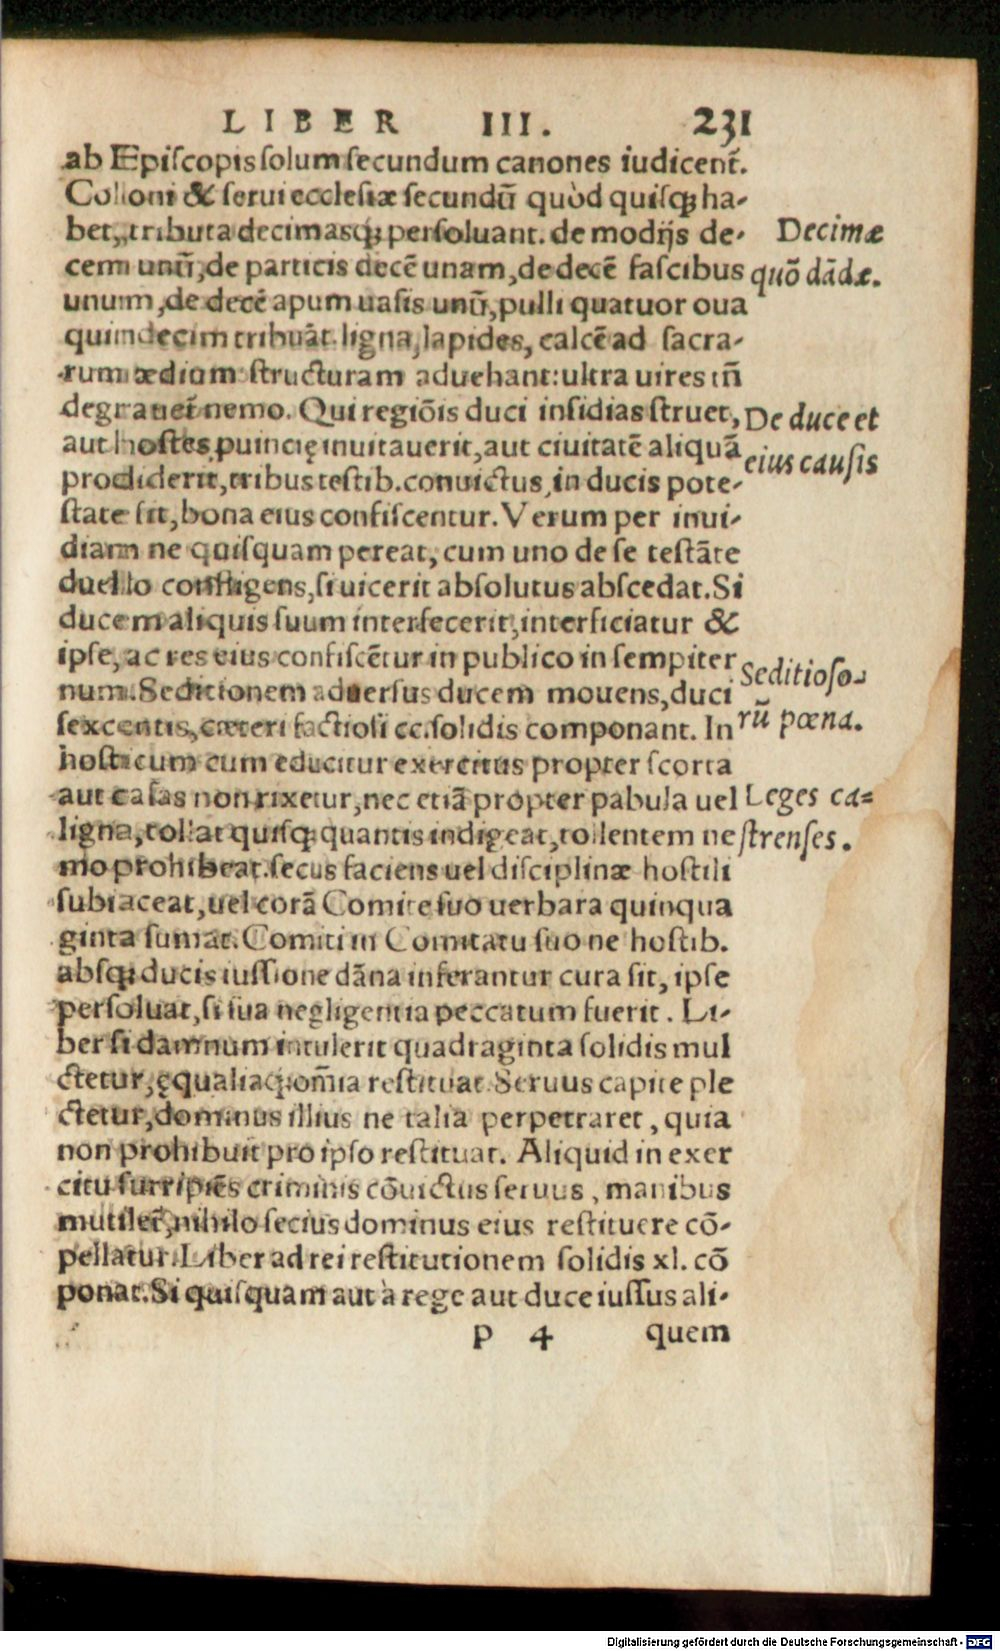 LIBER III. 231
ab Episcopis solum secundum canones iudicent̃.
Coloni & serui ecclesiæ secundũ quòd quisq; ha-
bet, tributa decimasq; persoluant. de modijs de-
Decimæ
cem unũ, de particis decẽ unam, de decẽ fascibus
quõ dãdæ.
unum, de decẽ apum uasis unũ, pulli quatuor oua
quindecim tribuãt. ligna, lapides, calcẽ ad sacra-
rum ædium structuram aduehant: ultra uires tñ
degrauet̃ nemo. Qui regiõis duci insidias struet,
De duce et
aut hostes puincię inuitauerit, aut ciuitatẽ aliquã
eius causis
prodiderit, tribus testib. conuictus, in ducis pote-
state sit, bona eius confiscentur. Verum per inui-
diam ne quisquam pereat, cum uno de se testãte
duello confligens, si uicerit absolutus abscedat. Si
ducem aliquis suum interfecerit, interficiatur &
ipse, ac res eius confiscẽtur in publico in sempiter
Seditioso-
num. Seditionem aduersus ducem mouens, duci
rũ pœna.
sexcentis, cæteri factiosi cc. solidis componant. In
hosticum cum educitur exercitus propter scorta
aut casas non rixetur, nec etiã propter pabula uel
Leges ca=
ligna, tollat quisq; quantis indigeat, tollentem ne
strenses.
mo prohibeat. secus faciens uel disciplinæ hostili
subiaceat, uel corã Comite suo uerbara quinqua
ginta sumat. Comiti in Comitatu suo ne hostib.
absq; ducis iussione dãna inferantur cura sit, ipse
persoluat, si sua negligentia peccatum fuerit. Li-
ber si damnum intulerit quadraginta solidis mul
ctetur, ęqualiaq; om̃ia restituat. Seruus capite ple
ctetur, dominus illius ne talia perpetraret, quia
non prohibuit pro ipso restituat. Aliquid in exer
citu surripiẽs criminis cõuictus seruus, manibus
mutilet̃, nihilo secius dominus eius restituere cõ-
pellatur. Liber ad rei restitutionem solidis xl. cõ
ponat. Si quisquam aut à rege aut duce iussus ali-
p 4 quem
Digitalisierung gefördert durch die Deutsche Forschungsgemeinschaft - DFG